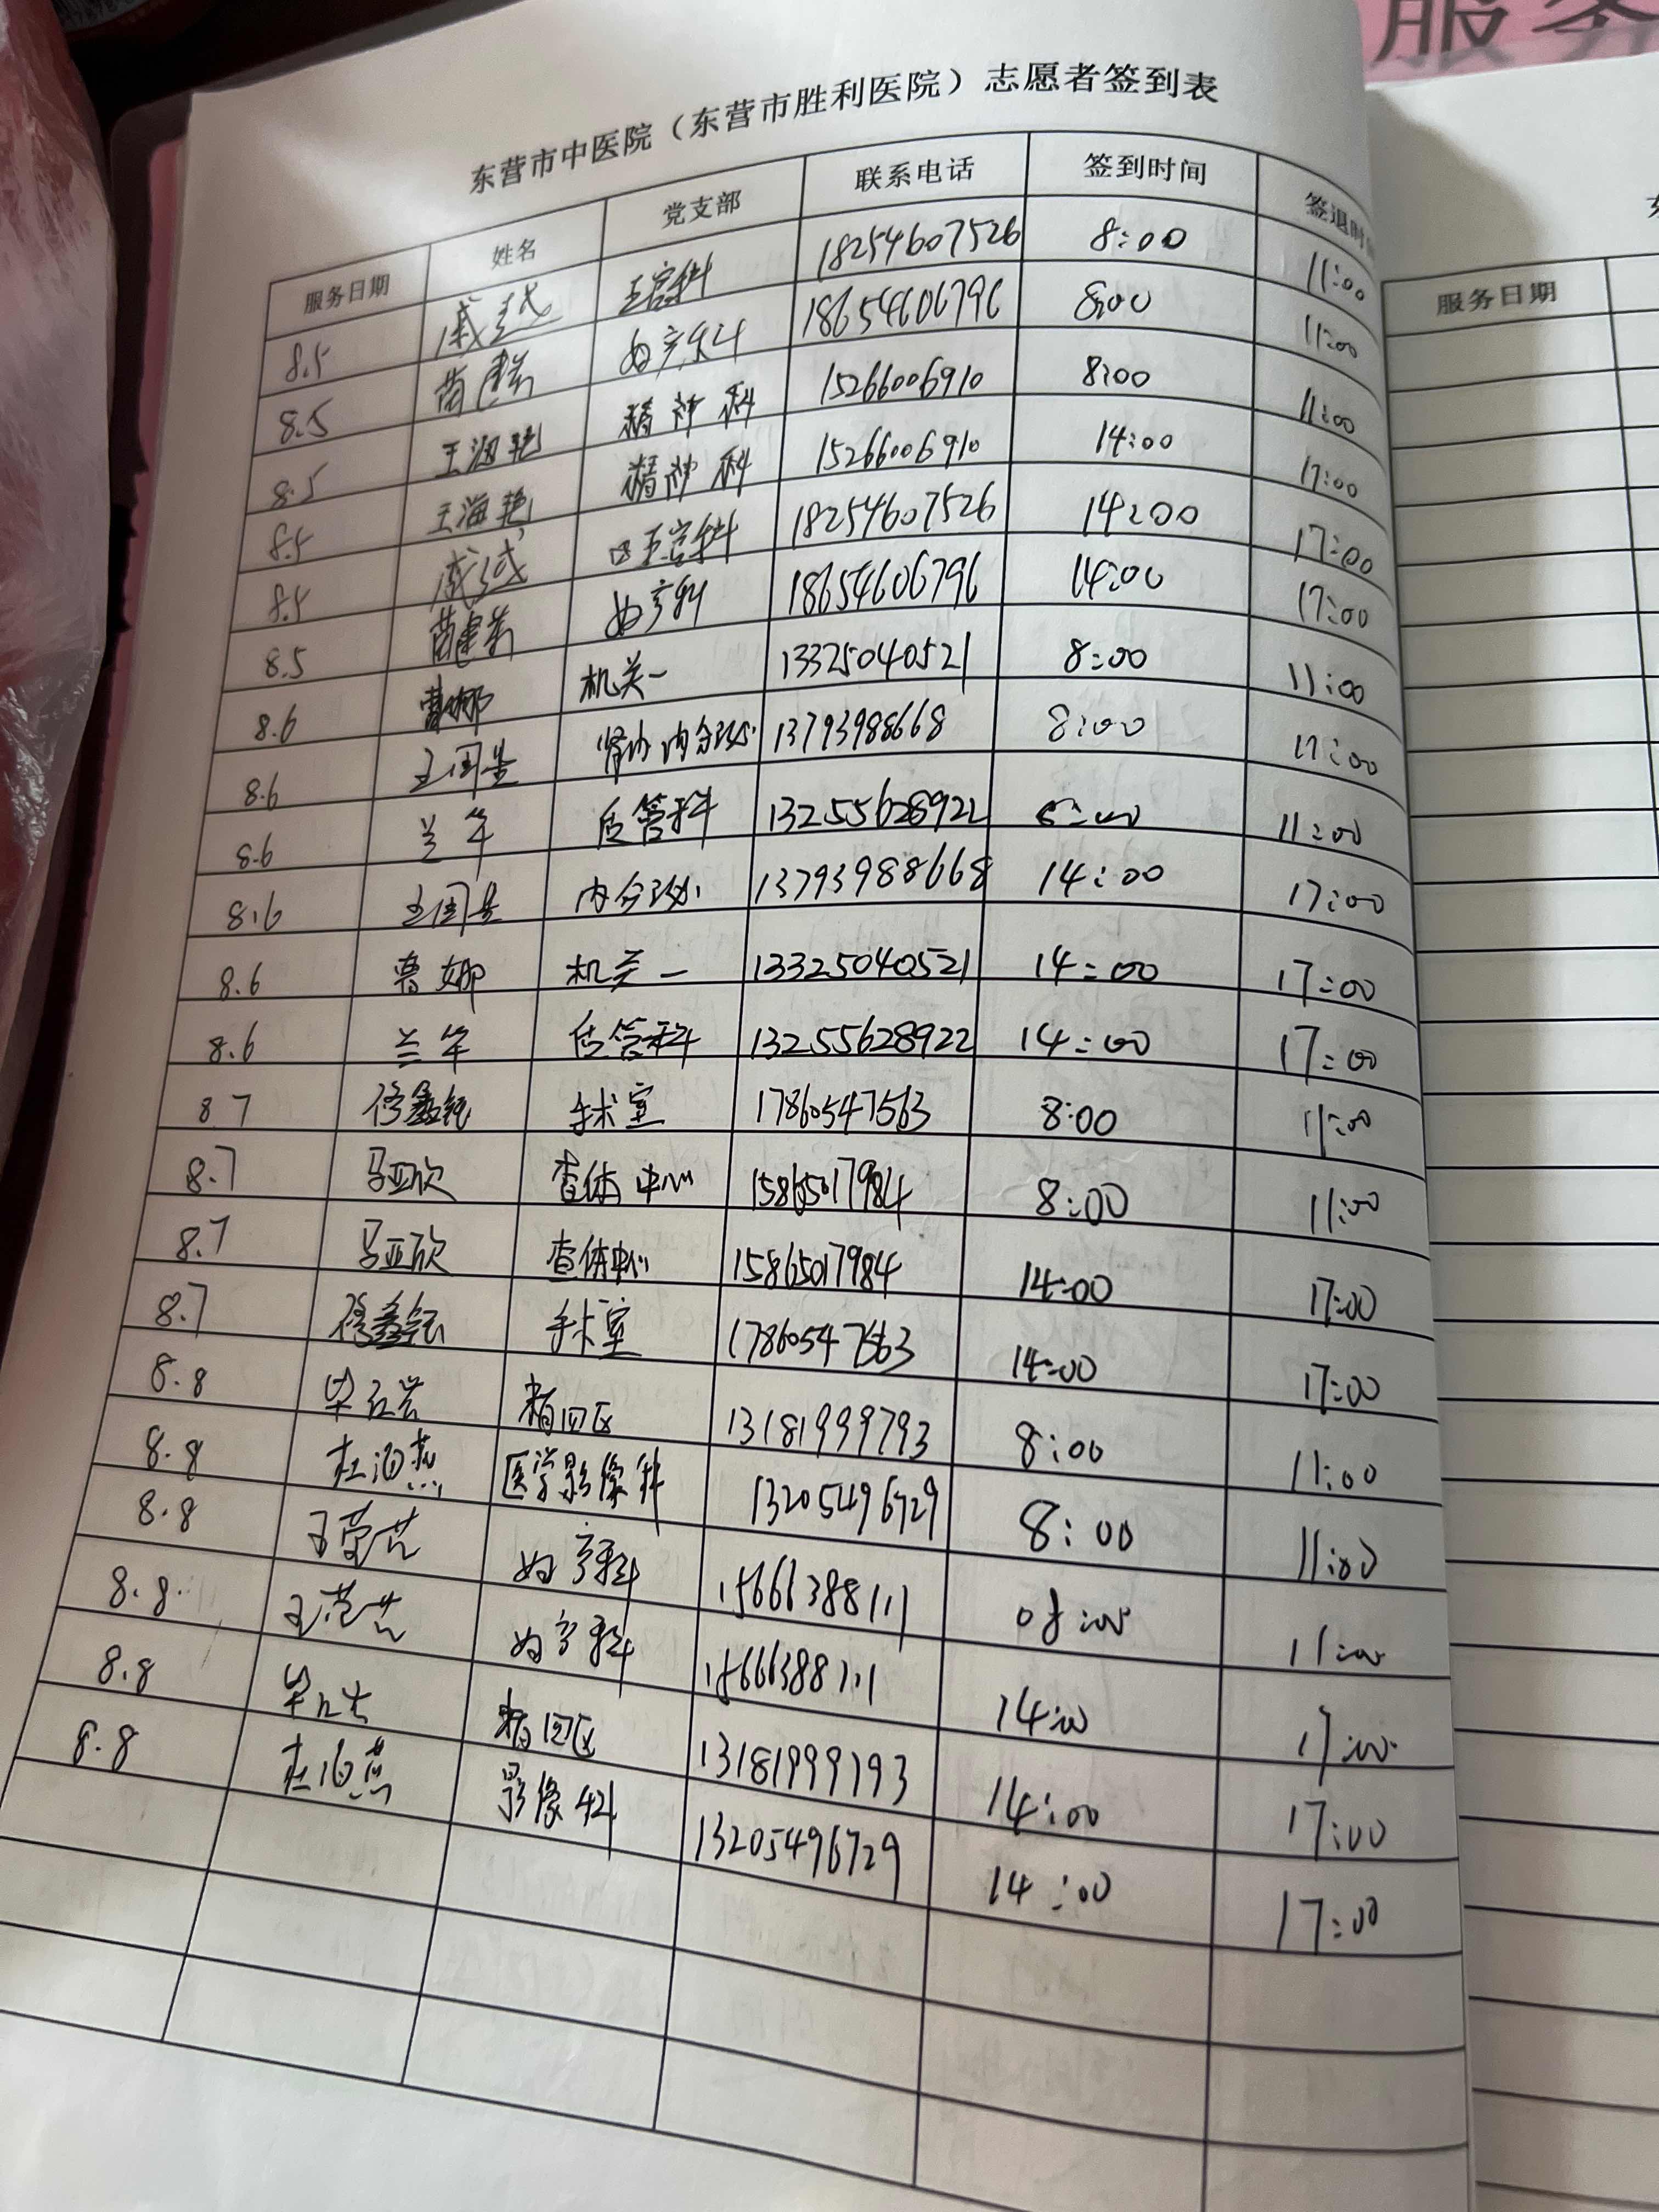 服务
东营市中医院（东营市胜利医院）志愿者签到表
服务日期 姓名 党支部 联系电话 签到时间 签退时
8.5 18254607526 8:00 11:00
8.5 妇产科 18654606796 8:00 11:00
8.5 王海艳 精神科 15266006910 8:00 11:00
8.5 王海艳 精神科 15266006910 14:00 17:00
8.5 18254607526 14:00 17:00
8.5 妇产科 18654606796 14:00 17:00
8.6 曹娜 机关一 13325040521 8:00 11:00
8.6 王国景 肾内内分泌 13793988668 8:00 11:00
8.6 兰军 质管科 13255628922 8:00 11:00
8.6 王国景 内分泌 13793988668 14:00 17:00
8.6 曹娜 机关一 13325040521 14:00 17:00
8.6 兰军 质管科 13255628922 14:00 17:00
8.7 手术室 17860547563 8:00 11:00
8.7 马亚欣 查体中心 15865017984 8:00 11:00
8.7 马亚欣 查体中心 15865017984 14:00 17:00
8.7 手术室 17860547563 14:00 17:00
8.8 精四区 13181999793 8:00 11:00
8.8 杜海燕 医学影像科 13205496729 8:00 11:00
8.8 妇产科 08:00 11:00
8.8 妇产科 14:00 17:00
8.8 精四区 13181999793 14:00 17:00
8.8 杜海燕 影像科 13205496729 14:00 17:00
服务日期